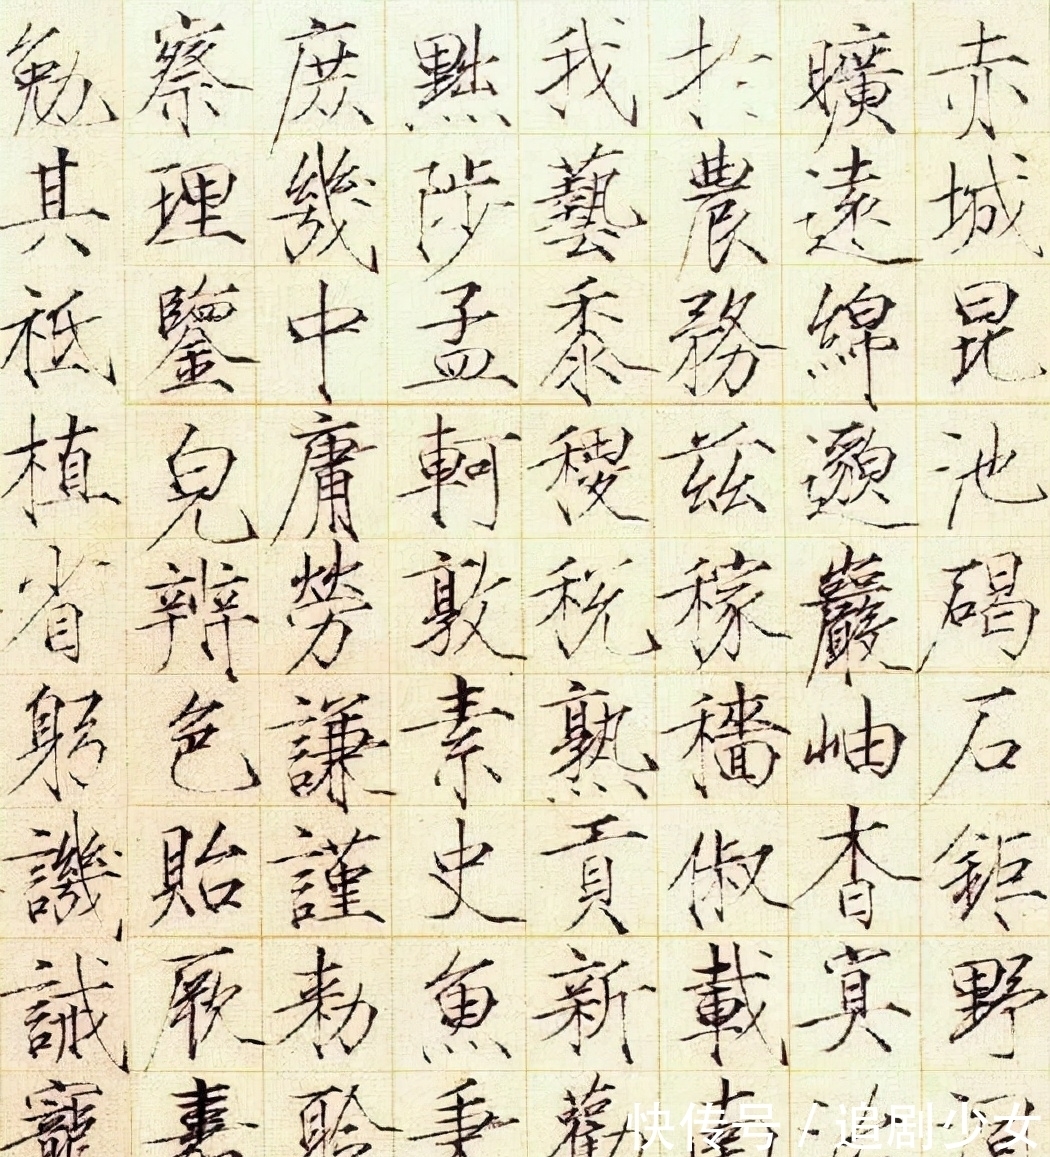 赤城昆池碣石鉅野洞
曠遠綿邈巖岫杳冥治
於農務茲稼穡俶載南
我藝黍稷稅熟貢新勸
黜陟孟軻敦素史魚秉
庶幾中庸勞謙謹勅聆
察理鑒皃辨色貽厥嘉
勉其祗植省躬譏誡寵
快传号 / 追剧少女